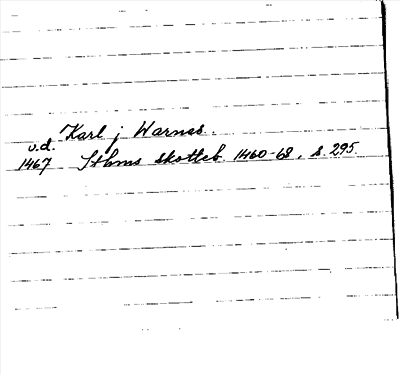 Karl j Warnas.
u.d.
1467 Sthms skotteb. 1460-68, s. 295.